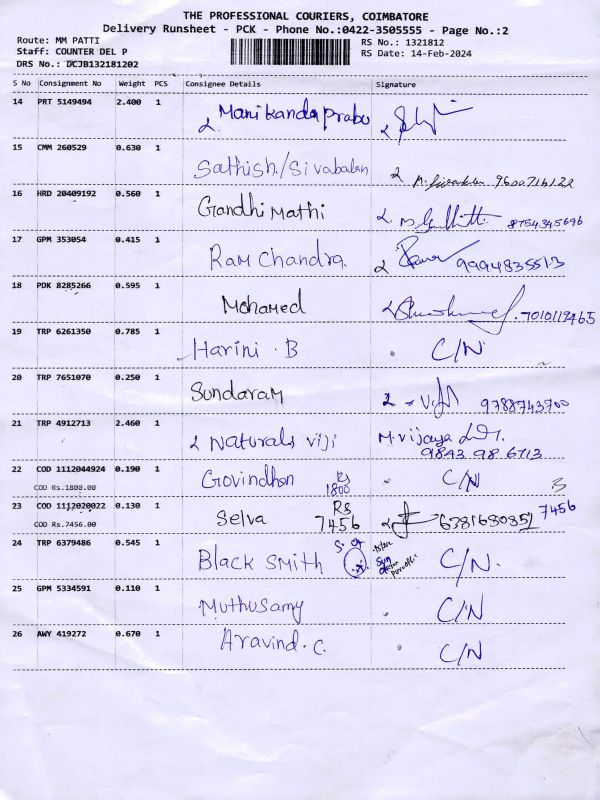 THE PROFESSIONAL COURIERS, COIMBATORE
Delivery Runsheet - PCK - Phone No.:0422-3505555 - Page No.:2
Route: MM PATTI
RS No.: 1321812
Staff: COUNTER DEL P
RS Date: 14-Feb-2024
DRS No.: DCJB132181202
S No Consignment No Weight PCS Consignee Details Signature
14 PRT 5149494 2.400 1 Manikanda prabu
15 CMM 260529 0.630 1 Sathish./Sivabalan 9600716122
16 HRD 20409192 0.560 1 Gandhi Mathi 8754345696
17 GPM 353054 0.415 1 Ram Chandra. 9994835513
18 PDK 8285266 0.595 1 Mohamed 7010119465
19 TRP 6261350 0.785 1 Harini . B C/N
20 TRP 7651070 0.250 1 Sundaram 9788743700
21 TRP 4912713 2.460 1 Naturals viji M. vijaya
9843 98 6713
22 COD 1112044924 0.190 1 Govindhan Rs 1800 C/N
COD Rs.1800.00
23 COD 1112020022 0.130 1 Selva Rs 7456 6381680851 7456
COD Rs.7456.00
24 TRP 6379486 0.545 1 Black Smith C/N.
25 GPM 5334591 0.110 1 Muthusamy C/N
26 AWY 419272 0.670 1 Aravind . C. C/N